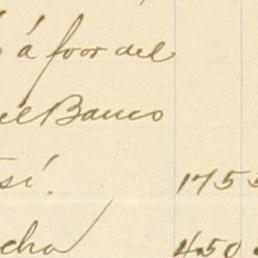 á foor del
el Banco
sí. 1755
cha 450